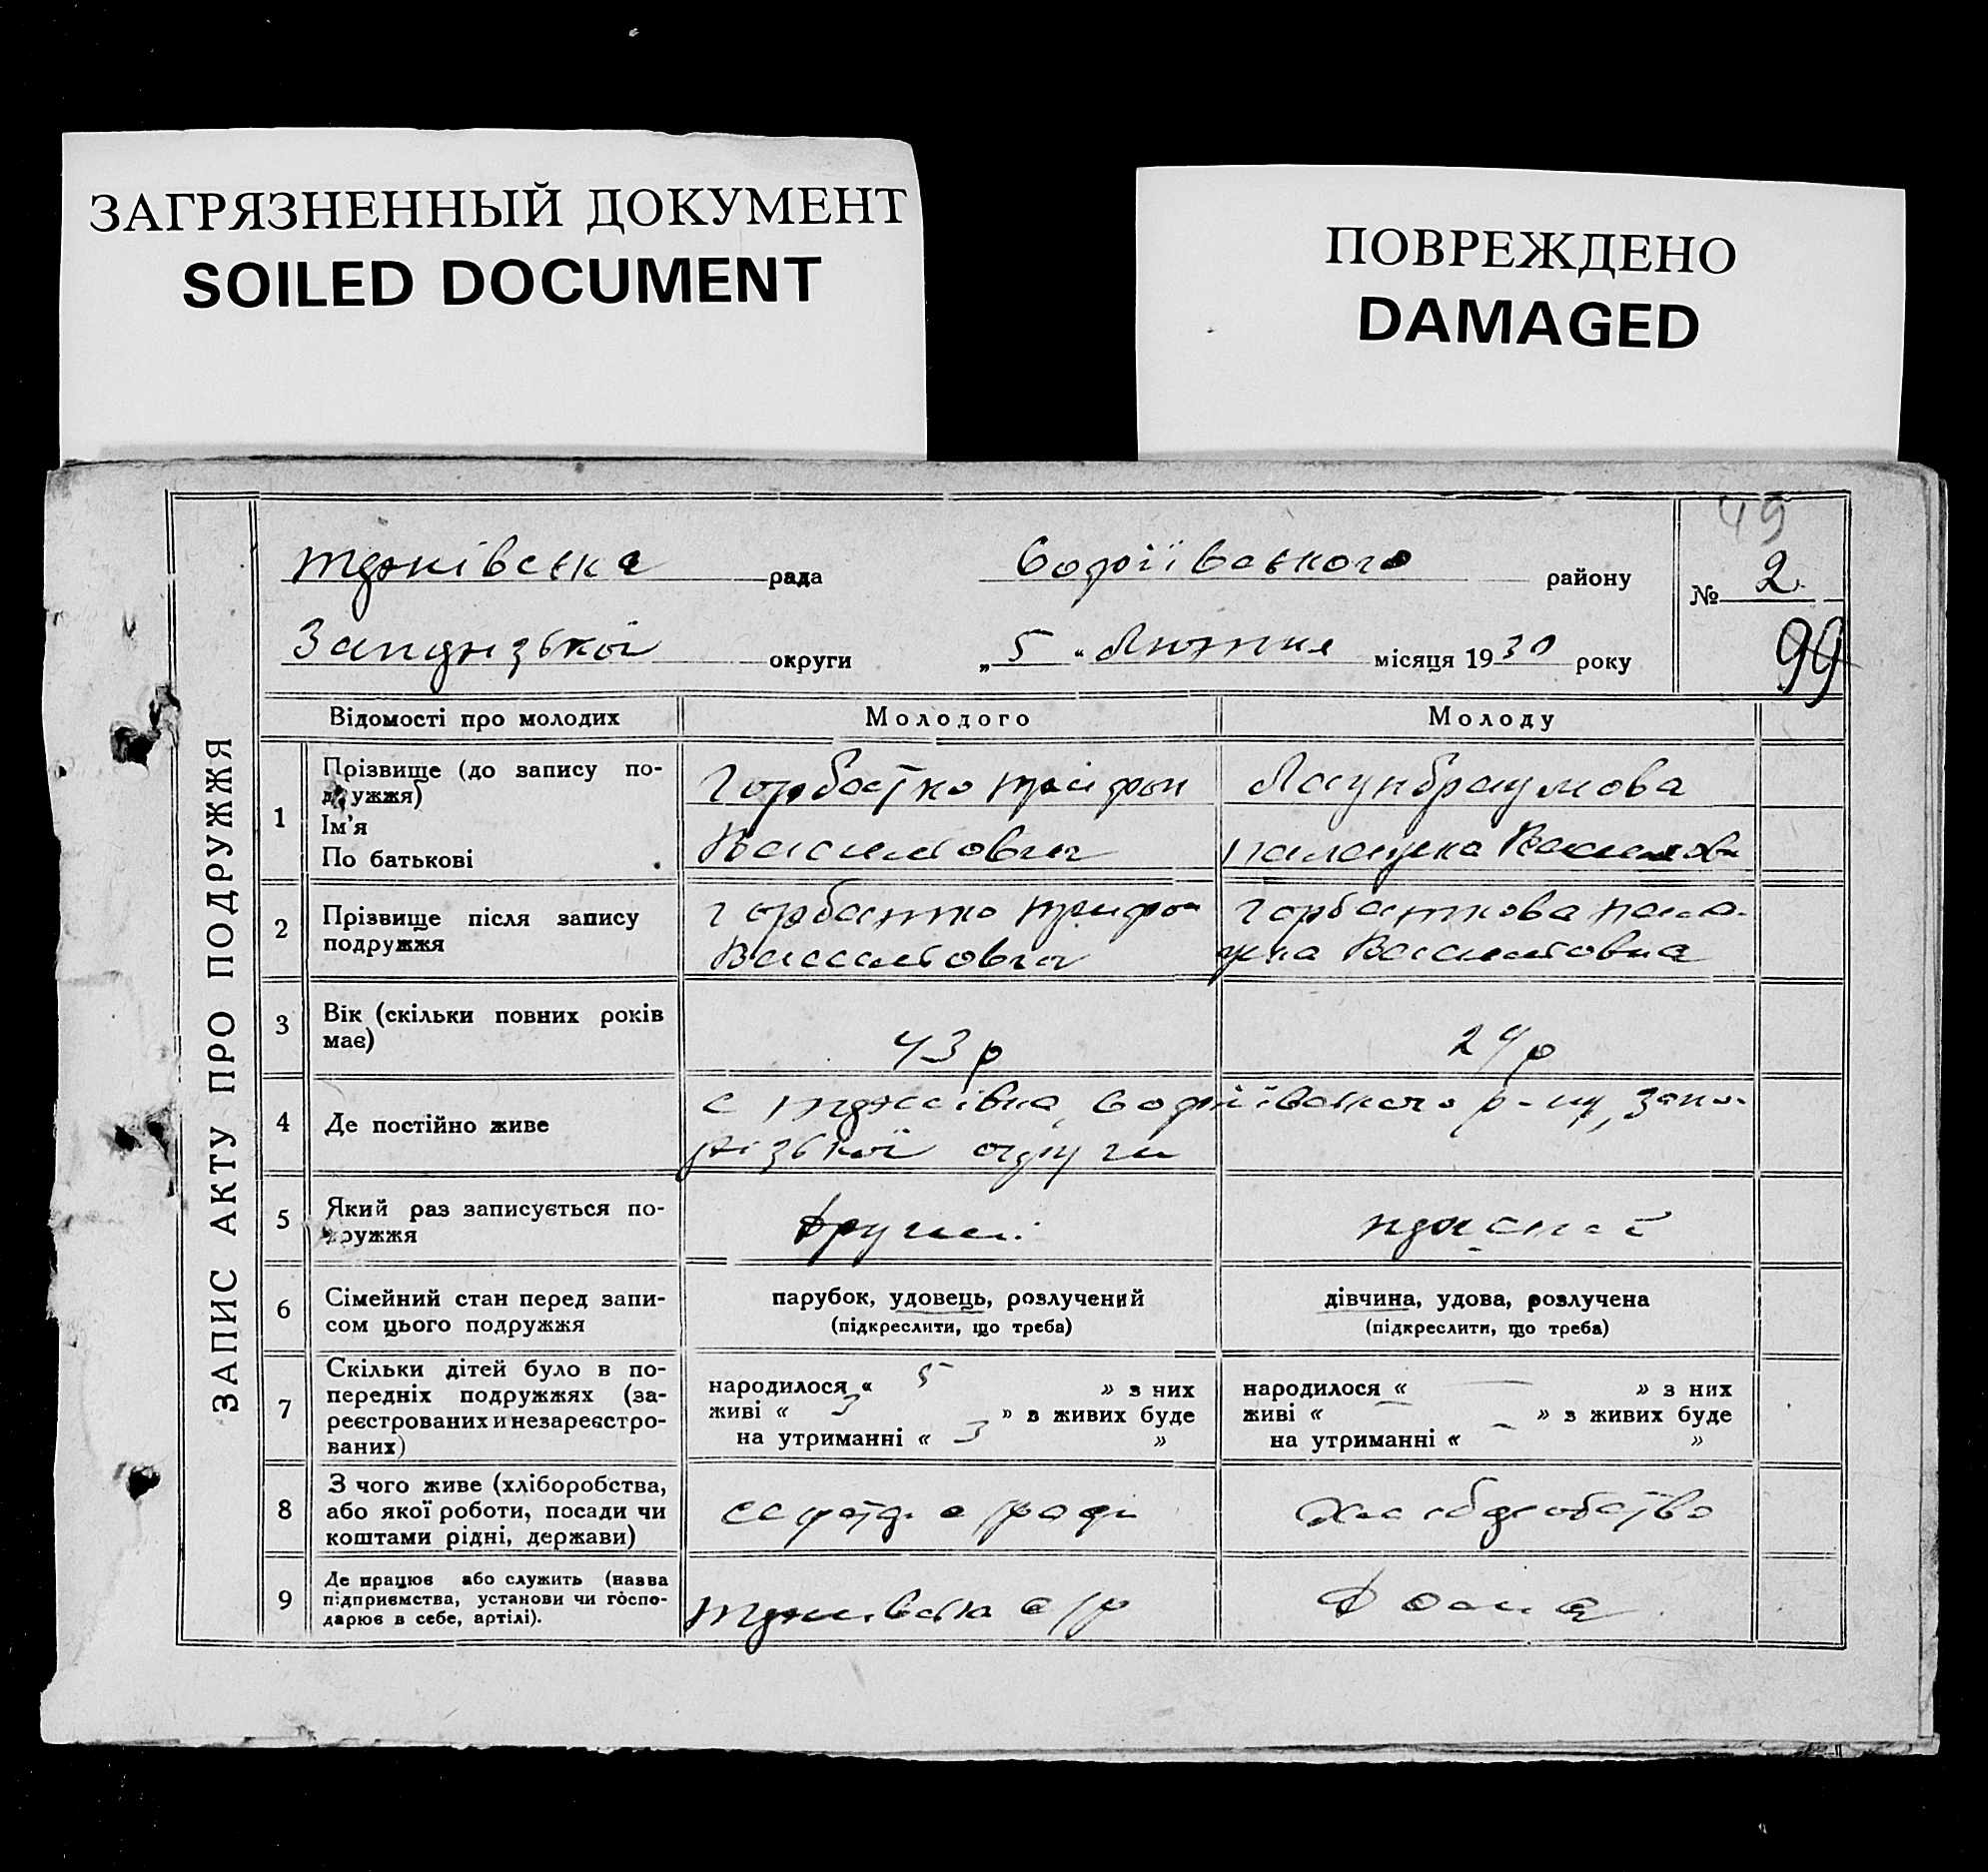 ЗАГРЯЗНЕННЫЙ ДОКУМЕНТ
SOILED DOCUMENT
ПОВРЕЖДЕНО
DAMAGED
ЗАПИС АКТУ ПРО ПОДРУЖЖЯ
49
рада Софіївського району № 2
Запорізької округи „5“ Лютня місяця 1930 року
99
Відомості про молодих Молодого Молоду
1 Прізвище (до запису по-
дружжя)
Ім'я
По батькові
Горбатко Трифон
Василович
Палашка Василов
2 Прізвище після запису
подружжя
Горбатко Трифон
Василович
Горбаткова Пала-
шка Василовна
3 Вік (скільки повних років
має)
43 р
24 р
4 Де постійно живе
с Софіївського р-ну, Запо-
різької округи
5 Який раз записується по-
дружжя
другий
6 Сімейний стан перед запи-
сом цього подружжя
парубок, удовець, розлучений
(підкреслити, що треба)
дівчина, удова, розлучена
(підкреслити, що треба)
7 Скільки дітей було в по-
передніх подружжях (за-
реєстрованих и незареєстро-
ваних)
народилося « 5 » з них
живі « 3 » з живих буде
на утриманні « 3 »
народилося « — » з них
живі « — » з живих буде
на утриманні « — »
8 З чого живе (хліборобства,
або якої роботи, посади чи
коштами рідні, держави)
хліборобство
9 Де працює або служить (назва
підприємства, установи чи госпо-
дарює в себе, артілі).
с/р
дома